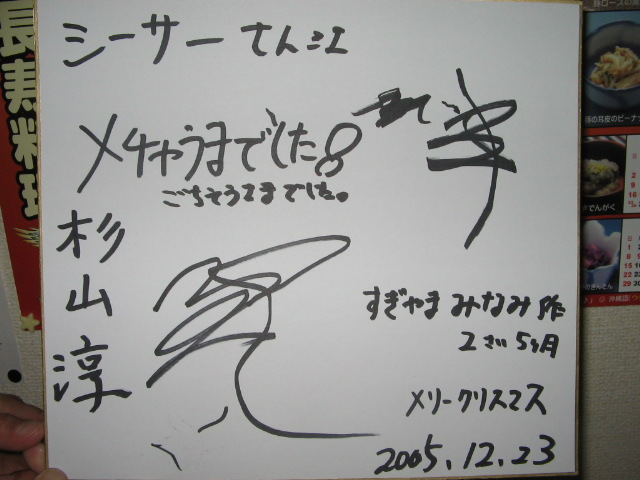 シーサーさん江
メチャうまでした!
ごちそうさまでした。
杉山淳
すぎやまみなみ作
2さい5ヶ月
メリークリスマス
2005.12.23
長寿料理